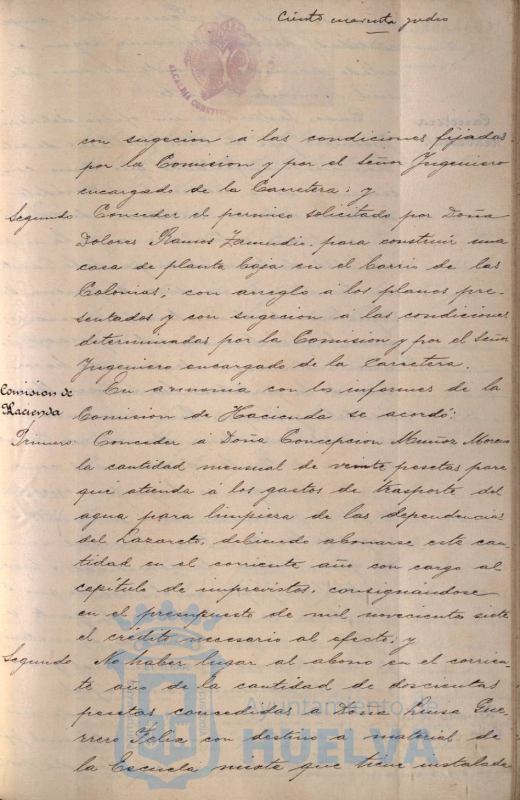 Ciento cuarenta y ocho
ALCALDIA CONSTIT
con sugecion á las condiciones fijadas
por la Comision y por el Señor Yngeniero
encargado de la Carretera; y
Segundo Conceder el permiso solicitado por Doña
Dolores Ramos Zamudio, para construir una
casa de planta baja en el barrio de las
Colonias; con arreglo á los planos pre-
sentados y con sugecion á las condiciones
determinadas por la Comision y por el Señor
Yngeniero encargado de la Carretera.
Comision de
Hacienda
En armonia con los informes de la
Comision de Hacienda se acordó:
Primero: Conceder á Doña Concepcion Muñoz Moreno
la cantidad mensual de veinte pesetas para
que atienda á los gastos de trasporte del
agua para limpieza de las dependencias
del Lazareto, debiendo abonarse esta can-
tidad en el corriente año con cargo al
capítulo de imprevistos, consignándose
en el presupuesto de mil novecientos siete
el crédito necesario al efecto; y
Segundo No haber lugar al abono en el corrien-
te año de la cantidad de doscientas
pesetas concedidas a Doña Luisa Gue-
rrero con destino a material de
la Escuela mixta que tiene instalada
Ayuntamiento de
HUELVA